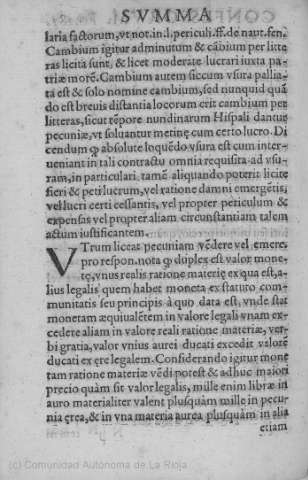 SVMMA
laria factorum, vt not.in.l.periculi.ff.de naut.fen.
Cambium igitur adminutum & cābium per litte
ras licita sunt, & licet moderate lucrari iuxta pa-
triæ morē. Cambium autem siccum vsura pallia-
ta est & solo nomine cambium, sed nunquid quā
do est breuis distantia locorum erit cambium per
litteras, sicut tēpore nundinarum Hispali dantur
pecuniæ, vt soluantur metinę cum certo lucro. Di
cendum ꝙ absolute loquēdo vsura est cum inter-
ueniant in tali contractu omnia requisita ad vsu-
ram, in particulari tamē aliquando poterit licite
fieri & peti lucrum, vel ratione damni emergētis,
vel lucri certi cessantis, vel propter periculum &
expensas vel propter aliam circunstantiam talem
actum iustificantem.
VTrum liceat pecuniam vēdere vel emere,
pro respon. nota ꝙ duplex est valor mone
tę, vnus realis ratione materię ex qua est, a-
lius legalis quem habet moneta ex statuto com-
munitatis seu principis à quo data est, vnde stat
monetam æquiualētem in valore legali vnam ex-
cedere aliam in valore reali ratione materiæ, ver-
bi gratia, valor vnius aurei ducati excedit valorē
ducati ex ęre legalem. Considerando igitur mone
tam ratione materiæ vēdi potest & adhuc maiori
precio quàm sit valor legalis, mille enim libræ in
auro materialiter valent plusquàm mille in pecu-
nia ęrea, & in vna materia aurea plusquàm in alia
etiam
(c) Comunidad Autónoma de La Rioja